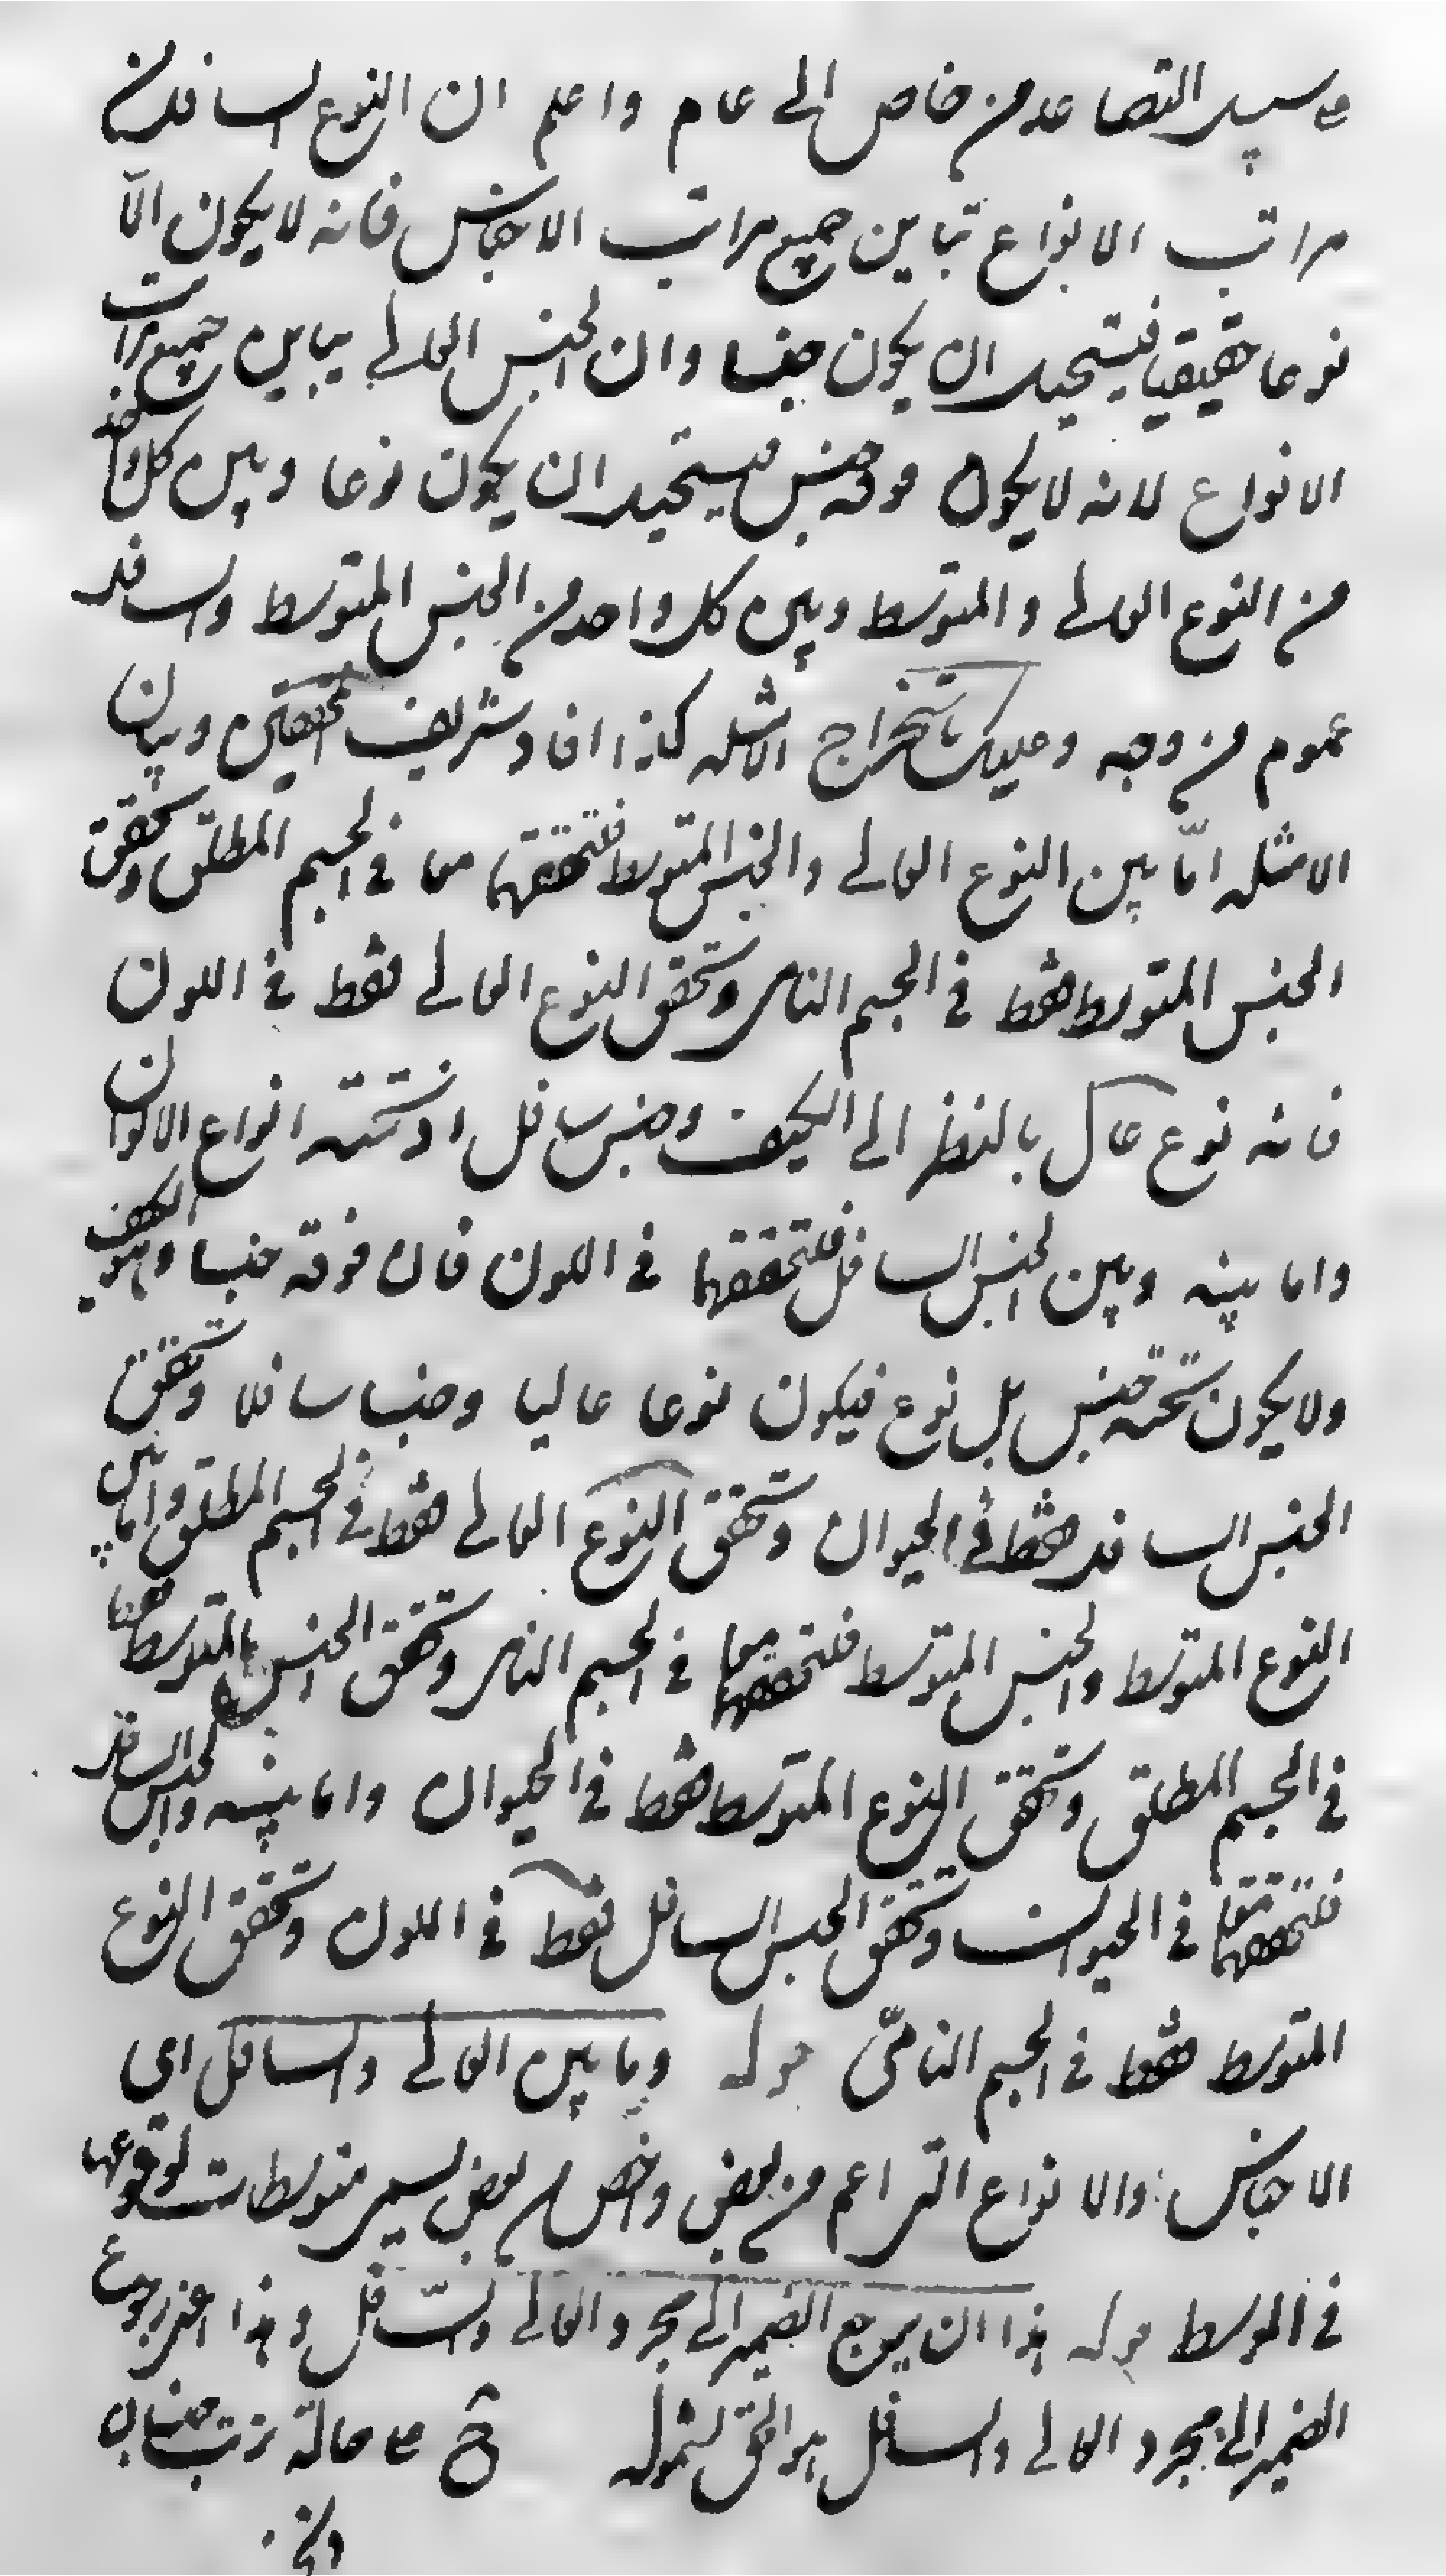 سبيل التصاعد من خاص الى عام واعلم ان النوع السافل من
مراتب الانواع تباين جميع مراتب الاجناس فانه لا يكون الّا
نوعا حقيقيا فيستحيل ان يكون جنسا وان الجنس العالى يباين جميع مراتب
الانواع لانه لا يكون فوقه جنس فيستحيل ان يكون نوعا وبين كل واحد
من النوع العالى والمتوسط وبين كل واحد من الجنس المتوسط والسافل
عموم من وجه وعليك باستخراج الامثله كذا افاد شريف المحققين وبيان
الامثله امّا بين النوع العالى والجنس المتوسط فلتحققهما معا فى الجسم المطلق وتحقق
الجنس المتوسط فقط فى الجسم النامى وتحقق النوع العالى فقط فى اللون
فانه نوع عال بالنظر الى الكيف وجنس سافل اذ تحته انواع الالوان
واما بينه وبين الجنس السافل فلتحققهما فى اللون فان فوقه جنسا وهو الكيف
ولا يكون تحته جنس بل نوع فيكون نوعا عاليا وجنسا سافلا وتحقق
الجنس السافل فقط فى الحيوان وتحقق النوع العالى فقط فى الجسم المطلق واما بين
النوع المتوسط والجنس المتوسط فلتحققهما معا فى الجسم النامى وتحقق الجنس المتوسط فقط
فى الجسم المطلق وتحقق النوع المتوسط فقط فى الحيوان واما بينه والجنس السافل
فلتحققهما معا فى الحيوان وتحقق الجنس السافل فقط فى اللون وتحقق النوع
المتوسط فقط فى الجسم النامىّ قوله وما بين العالى والسافل اى
الاجناس والانواع التى اعم من بعض واخص من بعض يسمى متوسطات لوقوعها
فى الوسط قوله هذا ان يرجع الضمير الى مجرد العالى والسّافل وهذا اعنى رجوع
الضمير الى مجرد العالى والسافل هو الحق لشموله ح حالة ترتب جنسان